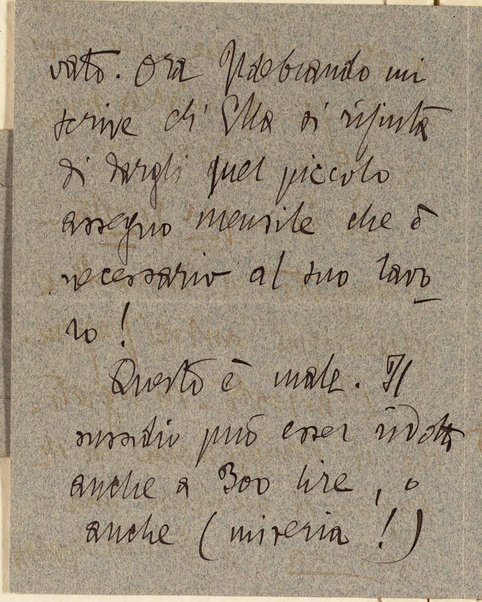 vato. Ora Ildebrando mi
scrive ch' Ella si rifiuta
di dargli quel piccolo
assegno mensile che è
necessario al suo lavo
ro!
Questo è male. Il
sussidio può esser ridotto
anche a 300 lire, o
anche (miseria!)